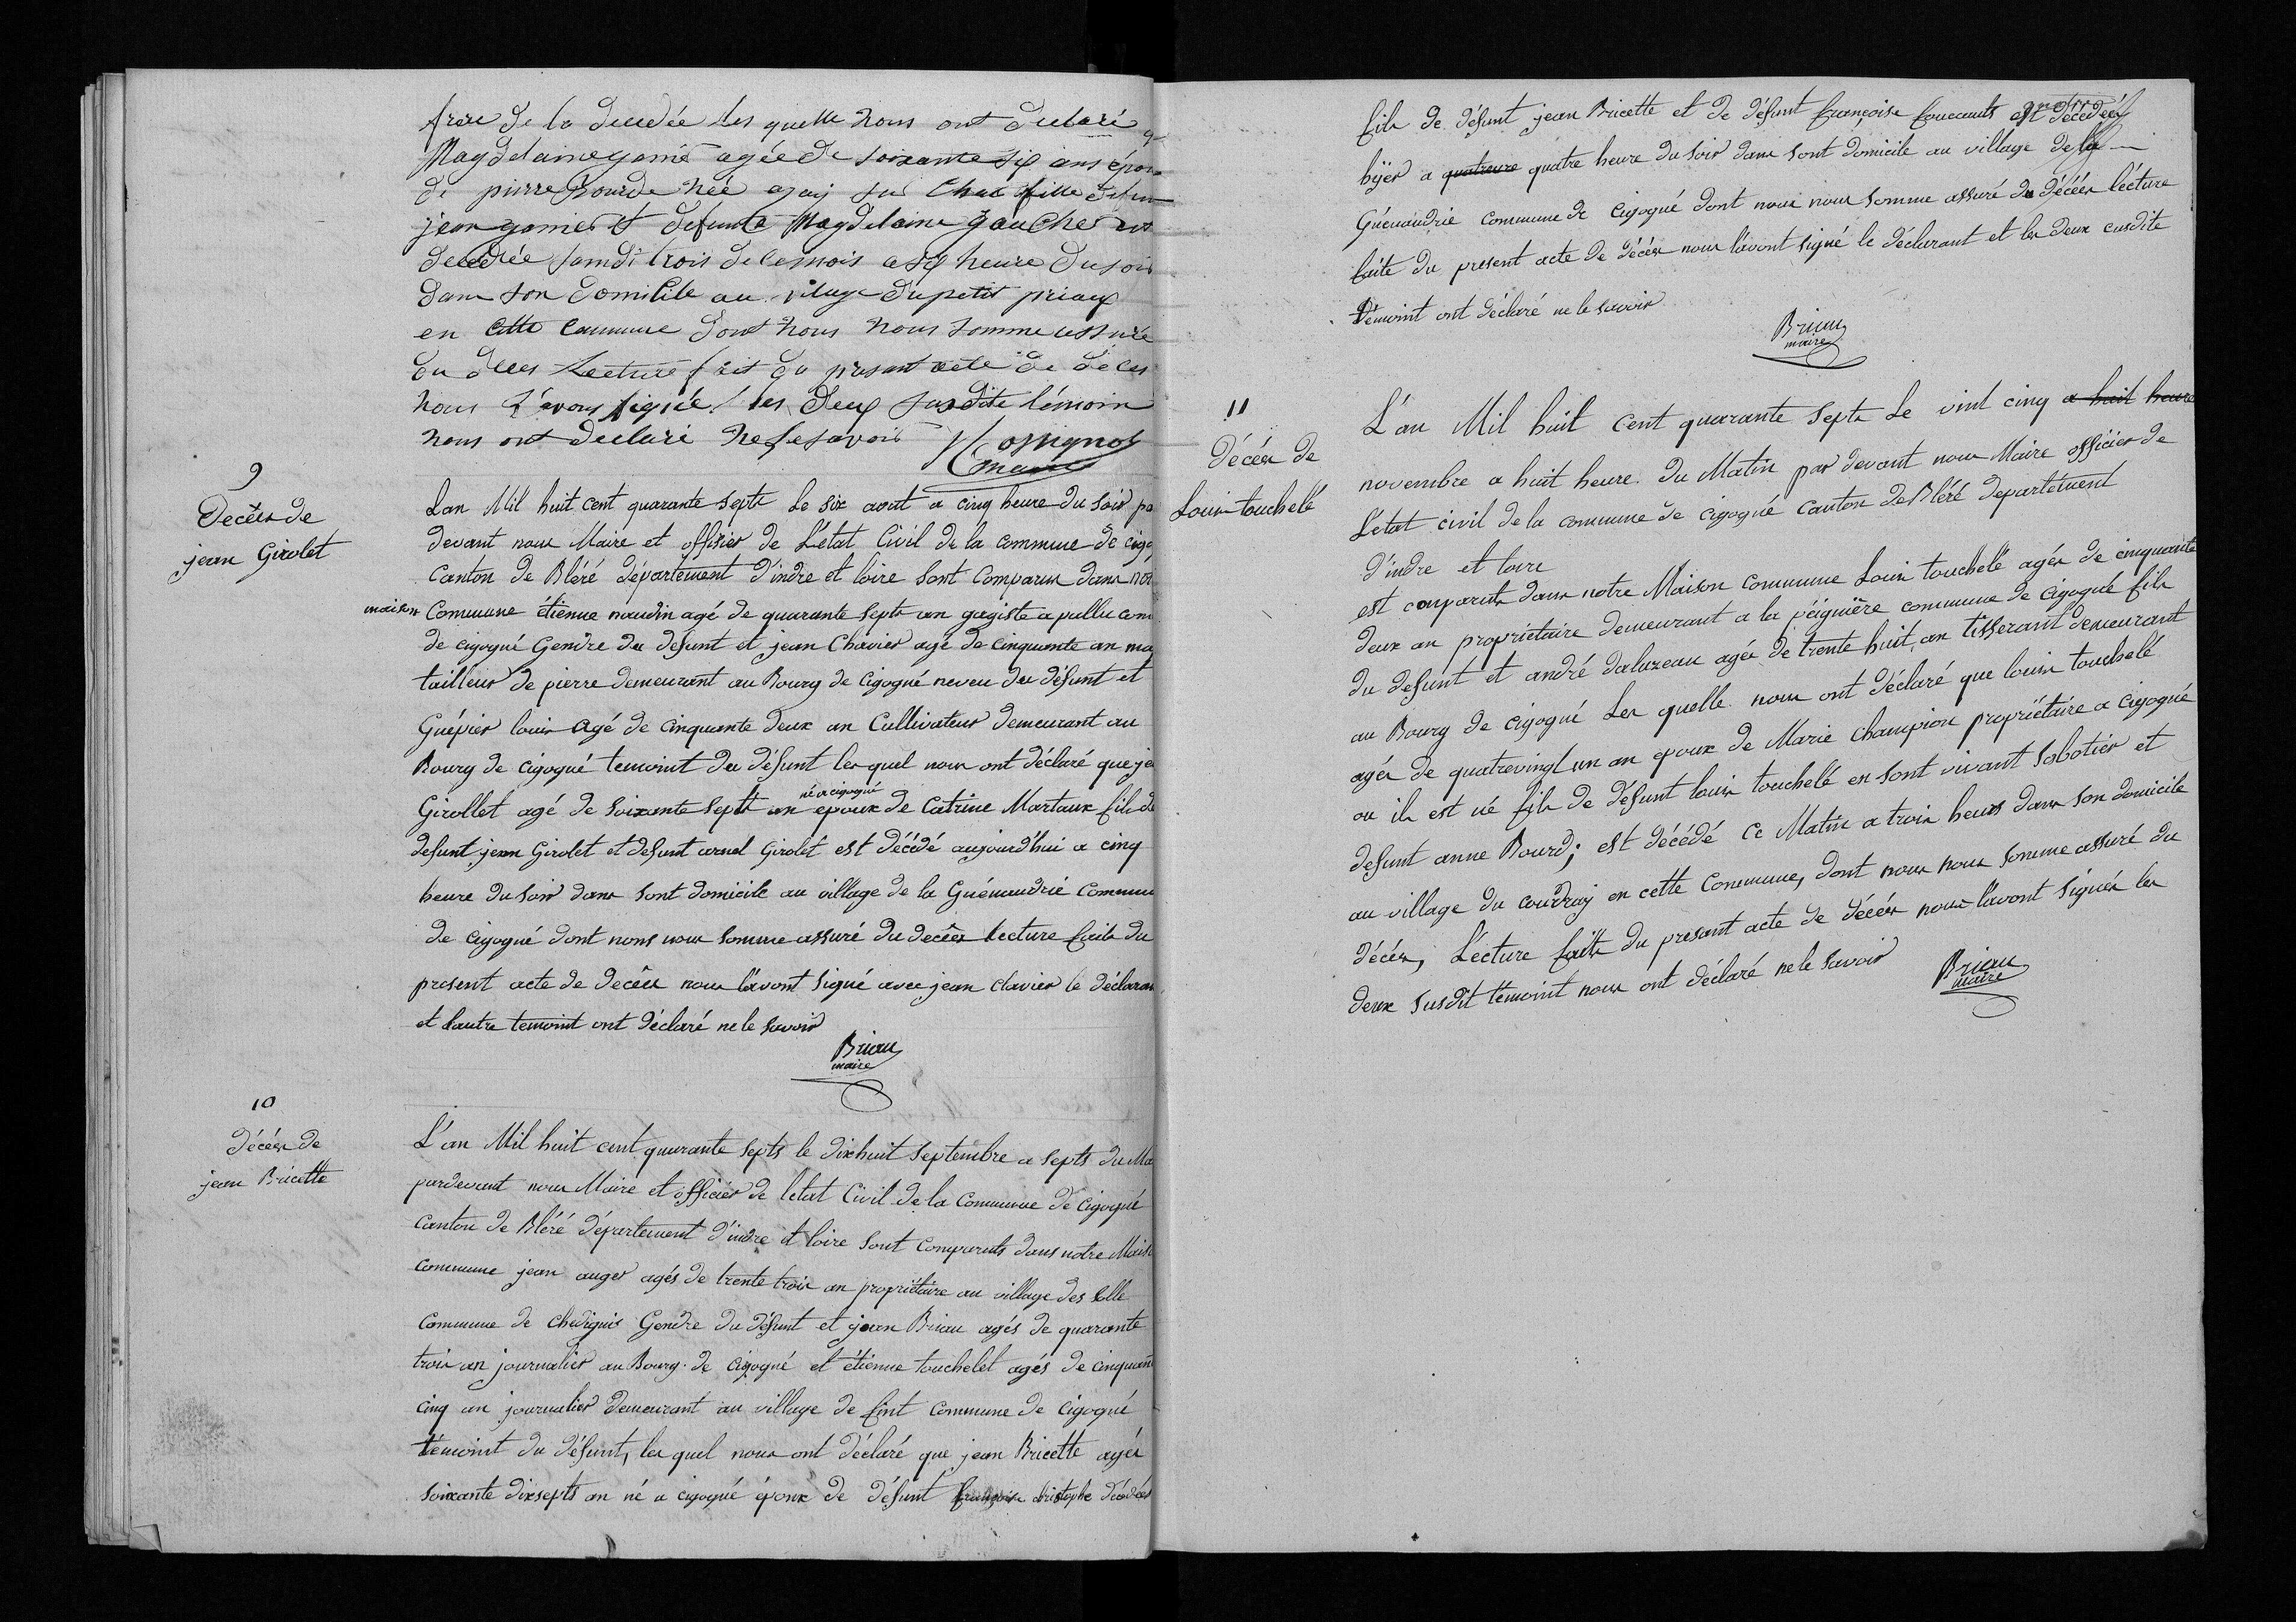 frere de la decedée les quelle nous ont declaré q
Magdelaine garnié agée de soixante six ans épou
de pierre Bourde née azay sur Cher fille defun
jean garnier et defunte Magdelaine Gaucher est
decedée samdi trois de ce mois a six heure du soir
dans son domicile au vilage du petit priaux
en cette Commune dont nous nous somme assuré
du deces Lecture fait du present acte de deces
nous l'avons signée les deux susdite témoin
nous ont declaré ne le savoir Rossignol
maire
9
Decées de
jean Girolet
Lan Mil huit cent quarante septs Le six aout a cinq heure du soir pa
devant nous Maire et offisier de L'état Civil de la commune de cigog
Canton de Bléré département d'indre et loire sont comparus dans not
maison Commune étienne naudin agé de quarante septs an gagiste a pullu com
de cigogné Gendre du defunt et jean Clavier agé de cinquante an ma
tailleur de pierre demeurant au Bourg de cigogné neveu du défunt et
Guépier louis agé de cinquante deux an Cultivateur demeurant au
Bourg de cigogné temoint du défunt les quel nous ont déclaré que je
né a cigogné
Girollet agé de soixante septs an epoux de Catrine Martaux fils de
defunt jean Girolet et defunt Girolet est décédé aujourd'hui a cinq
heure du soir dans sont domicile au village de la Guénaudrié Commun
de cigogné dont nous nous somme assuré du decées Lecture faite du
present acte de decées nous l'avont signé avec jean clavier le déclaran
et lautre temoint ont déclaré ne le savoir
Briau
maire
10
décées de
jean Bricette
L'an Mil huit cent quarante septs le dixhuit septembre a septs du Ma
pardevant nous Maire et officier de letat Civil de la Commune de cigogné
Canton de Bléré département d'indre et loire sont comparuts dans notre Mais
commune jean auger agés de trente trois an propriétaire au village des
Commune de chedignis Gendre du défunt et jean Briau agés de quarante
trois an journalier au Bourg de cigogné et étienne touchelet agés de cinquant
cinq an journalier demeurant au village de fint commune de cigogné
témoint du défunt, les quel nous ont déclaré que jean Bricette agés
soixante dixsepts an né a cigogné époux de défunt françoise christophe décédées
fils de défunt jean Bricette et de défunt françoise foucaults est décédées
hyer a quatreure quatre heure du soir dans sont domicile au village de la
Guénaudrié commune de cigogné dont nous nous somme assuré du décées lécture
faite du present acte de décées nous l'avont signé le déclarant et les deux susdite
témoint ont déclaré ne le savoir
Briau
maire
11
décées de
Louis touchelé
L'an Mil huit cent quarante septs Le vint cinq a huit heure
novembre a huit heure du Matin par devant nous Maire officier de
L'état civil de la commune de cigogné Canton de Bléré departement
d'indre et loire
est comparuts dans notre Maison commune Louis touchelé agés de cinquante
deux an propriétaire demeurant a la péignière commune de cigogné fils
du defunt et andré daluzeau agés de trente huit an tisserant demeurant
au Bourg de cigogné Les quelle nous ont déclaré que louis touchelé
agés de quatrevingt un an epoux de Marie champion propriétaire a cigogné
ou ils est né fils de défunt louis touchelé en sont vivant sabotier et
defunt anne Bourd; est décédé ce Matin a trois heures dans son domicile
au village du coudray en cette Commune, dont nous nous somme assuré du
décées, Lécture faite du presant acte de décées nous l'avont signées les
deux susdit témoint nous ont déclaré ne le savoir
Briau
maire